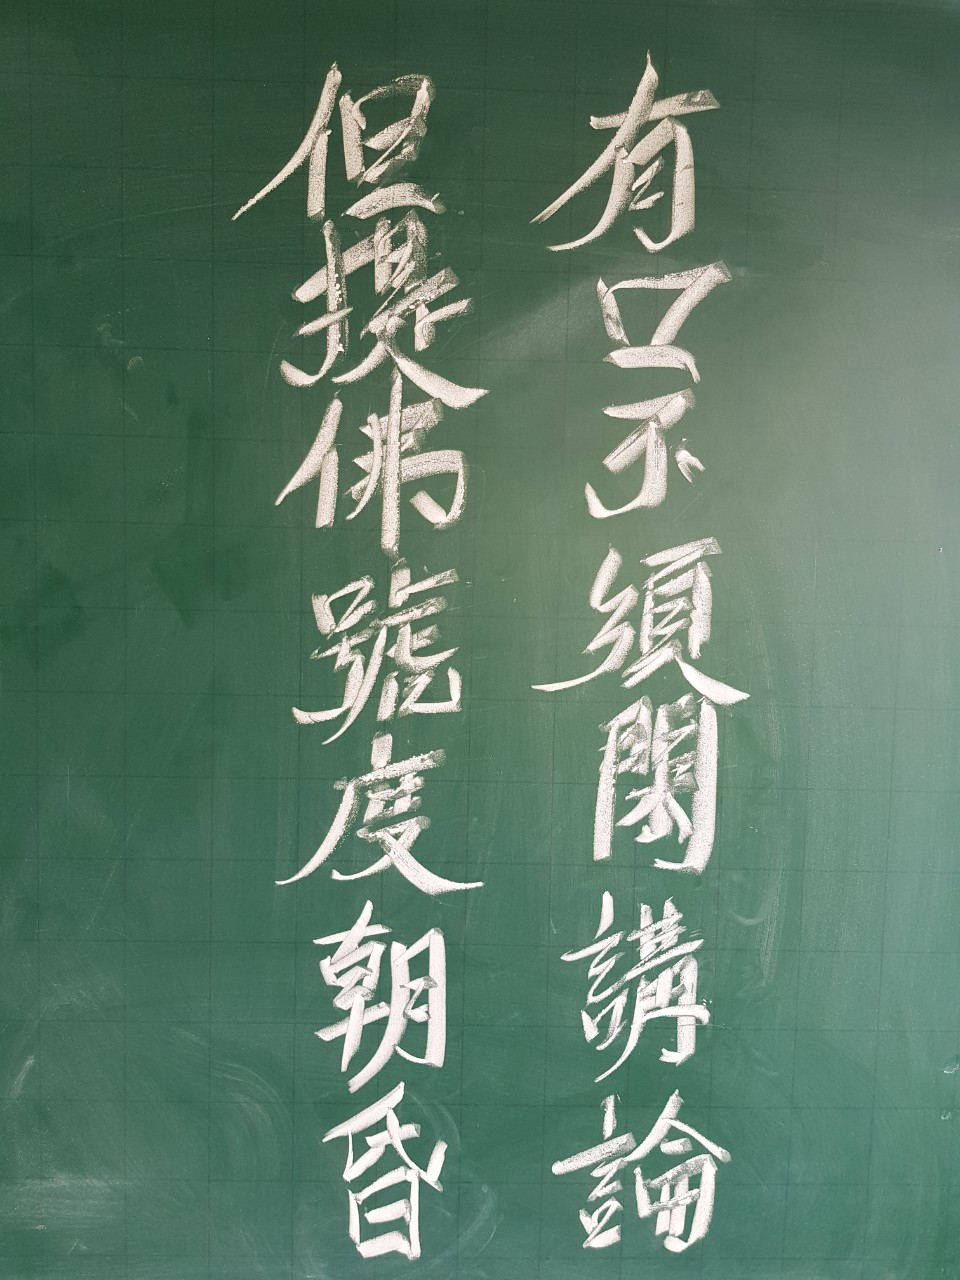 有口不須閑講論
但提佛號度朝昏